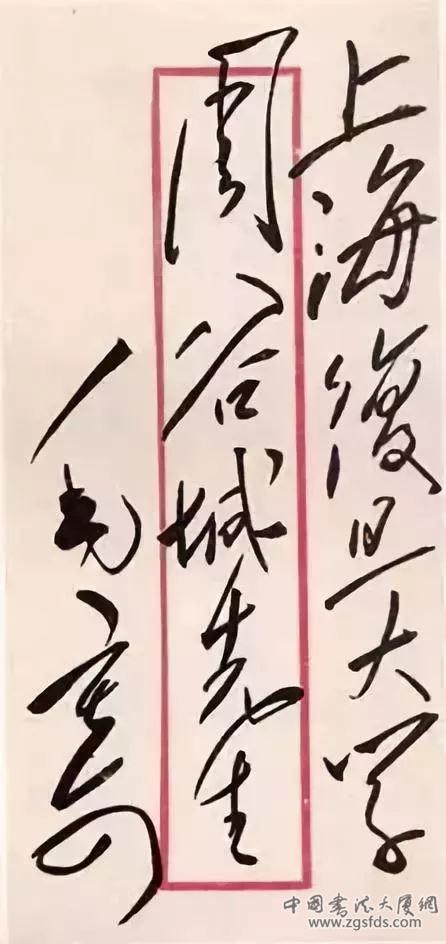 上海復旦大学
周谷城先生
毛寄
中國書法大厦網
www.zgsfds.com